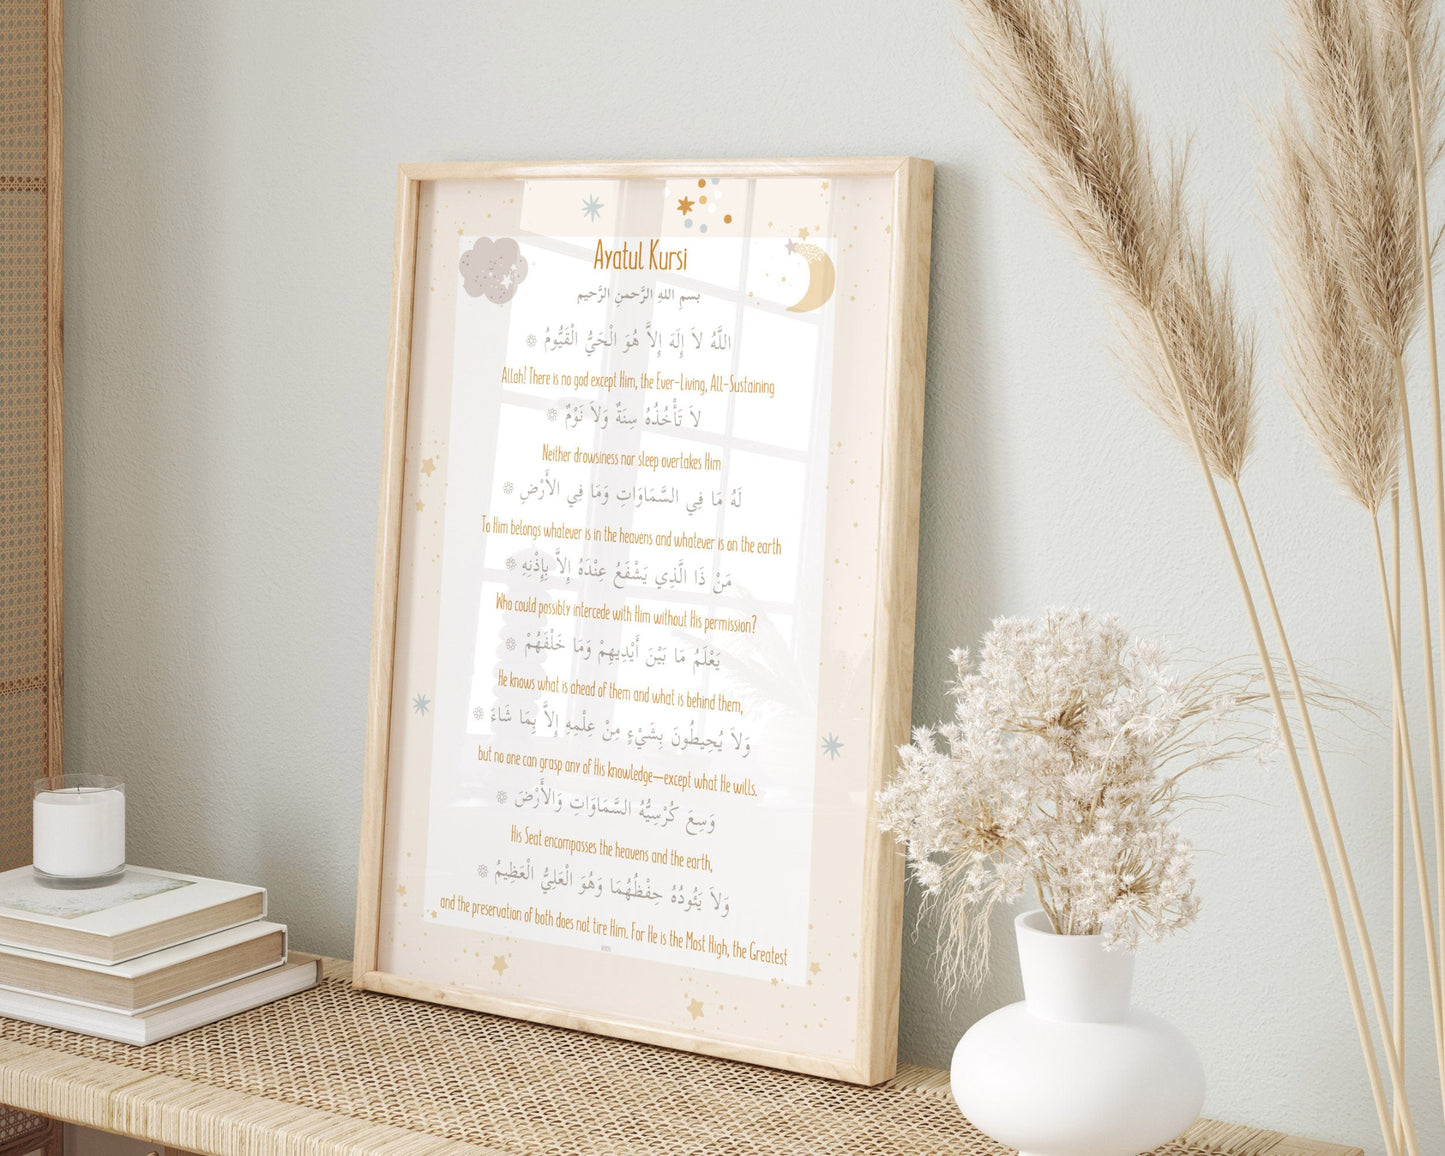 Ayatul Kursi
بسمِ اللهِ الرَّحمنِ الرَّحيم
اللَّهُ لاَ إِلَهَ إِلاَّ هُوَ الْحَيُّ الْقَيُّومُ
Allah! There is no god except Him, the Ever-Living, All-Sustaining
لاَ تَأْخُذُهُ سِنَةٌ وَلاَ نَوْمٌ
Neither drowsiness nor sleep overtakes Him
لَهُ مَا فِي السَّمَاوَاتِ وَمَا فِي الأَرْضِ
To Him belongs whatever is in the heavens and whatever is on the earth
مَنْ ذَا الَّذِي يَشْفَعُ عِنْدَهُ إِلاَّ بِإِذْنِهِ
Who could possibly intercede with Him without His permission?
يَعْلَمُ مَا بَيْنَ أَيْدِيهِمْ وَمَا خَلْفَهُمْ
He knows what is ahead of them and what is behind them,
وَلاَ يُحِيطُونَ بِشَيْءٍ مِنْ عِلْمِهِ إِلاَّ بِمَا شَاءَ
but no one can grasp any of His knowledge—except what He wills.
وَسِعَ كُرْسِيُّهُ السَّمَاوَاتِ وَالأَرْضَ
His Seat encompasses the heavens and the earth,
وَلاَ يَئُودُهُ حِفْظُهُمَا وَهُوَ الْعَلِيُّ الْعَظِيمُ
and the preservation of both does not tire Him. For He is the Most High, the Greatest